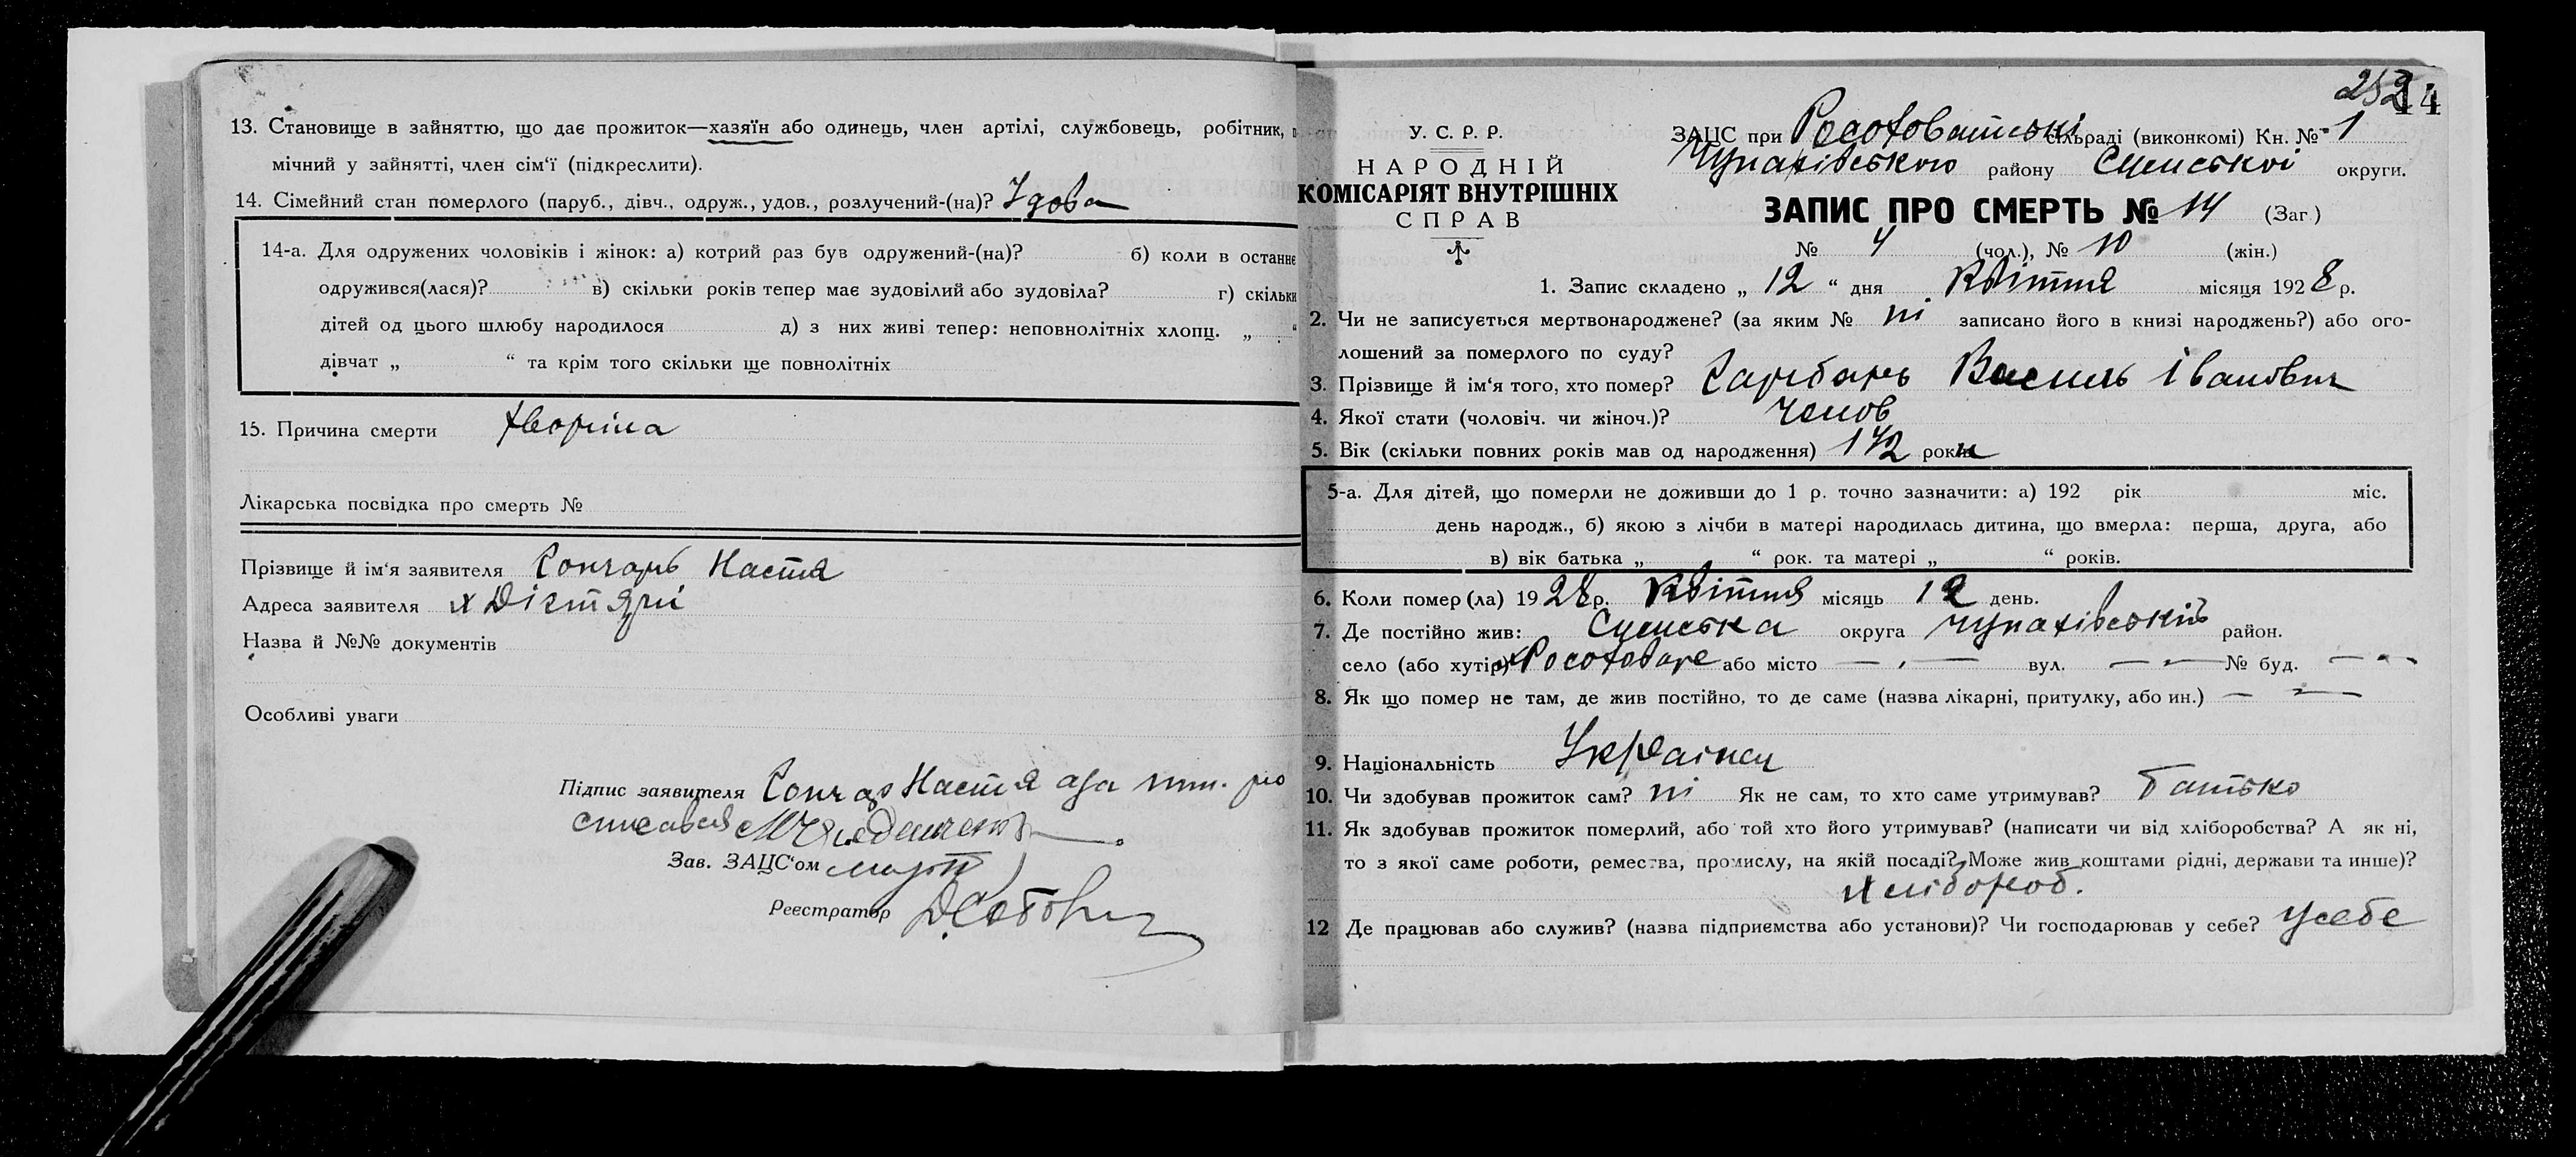 13. Становище в зайняттю, що дає прожиток—хазяїн або одинець, член артілі, службовець, робітник,
мічний у зайнятті, член сім'ї (підкреслити).
14. Сімейний стан померлого (паруб., дівч., одруж., удов., розлучений-(на)? Удова
14-а. Для одружених чоловіків і жінок: а) котрий раз був одружений-(на)? б) коли в останнє
одружився(лася)? в) скільки років тепер має зудовілий або зудовіла? г) скільки
дітей од цього шлюбу народилося д) з них живі тепер: неповнолітніх хлопц. „ “
дівчат „ “ та крім того скільки ще повнолітніх
15. Причина смерти хворіла
Лікарська посвідка про смерть №
Прізвище й ім'я заявителя Гончарь Настя
Адреса заявителя х Дігтярі
Назва й №№ документів
Особливі уваги
Підпис заявителя Гончар Настя а за
Зав. ЗАЦС'ом
Реєстратор
252 14
У. С. Р. Р.
НАРОДНІЙ
КОМІСАРІЯТ ВНУТРІШНІХ
СПРАВ
ЗАЦС при Росоховатській сільраді (виконкомі) Кн. № 1
Чупахівського району Сумської округи.
ЗАПИС ПРО СМЕРТЬ № 14 (Заг.)
№ 4 (чол.), № 10 (жін.)
1. Запис складено „ 12 “ дня Квітня місяця 1928 р.
2. Чи не записується мертвонароджене? (за яким № ні записано його в книзі народжень?) або ого-
лошений за померлого по суду?
3. Прізвище й ім'я того, хто помер? Василь Іванович
4. Якої стати (чоловіч. чи жіноч.)? Чолов
5. Вік (скільки повних років мав од народження) 1 1/2 роки
5-а. Для дітей, що померли не доживши до 1 р. точно зазначити: а) 192 рік міс.
день народж., б) якою з лічби в матері народилась дитина, що вмерла: перша, друга, або
в) вік батька „ “ рок. та матері „ “ років.
6. Коли помер (ла) 1928 р. Квітня місяць 12 день.
7. Де постійно жив: Сумська округа Чупахівський район.
село (або хутір) Росоховате або місто — . — вул. — — № буд. — —
8. Як що помер не там, де жив постійно, то де саме (назва лікарні, притулку, або ин.) — —
9. Національність Українец
10. Чи здобував прожиток сам? ні Як не сам, то хто саме утримував? Батько
11. Як здобував прожиток померлий, або той хто його утримував? (написати чи від хліборобства? А як ні,
то з якої саме роботи, ремества, промислу, на якій посаді? Може жив коштами рідні, держави та инше)?
хлібороб.
12 Де працював або служив? (назва підприємства або установи)? Чи господарював у себе? усебе